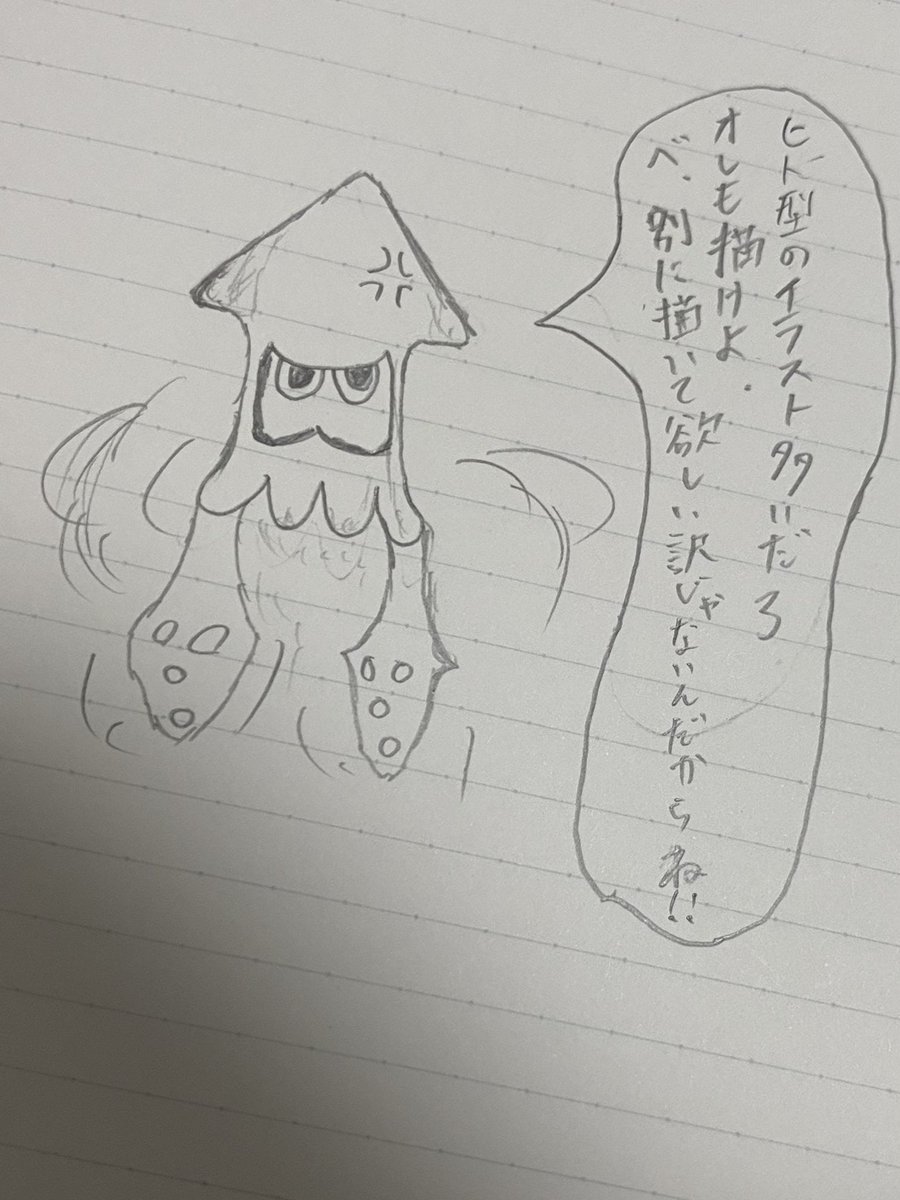 ヒト型のイラスト多いだろ
オレも描けよ.
べ、別に描いて欲しい訳じゃないんだからね!!